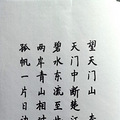 望天门山
天门中断楚江
碧水东流至
两岸青山相
孤帆一片日